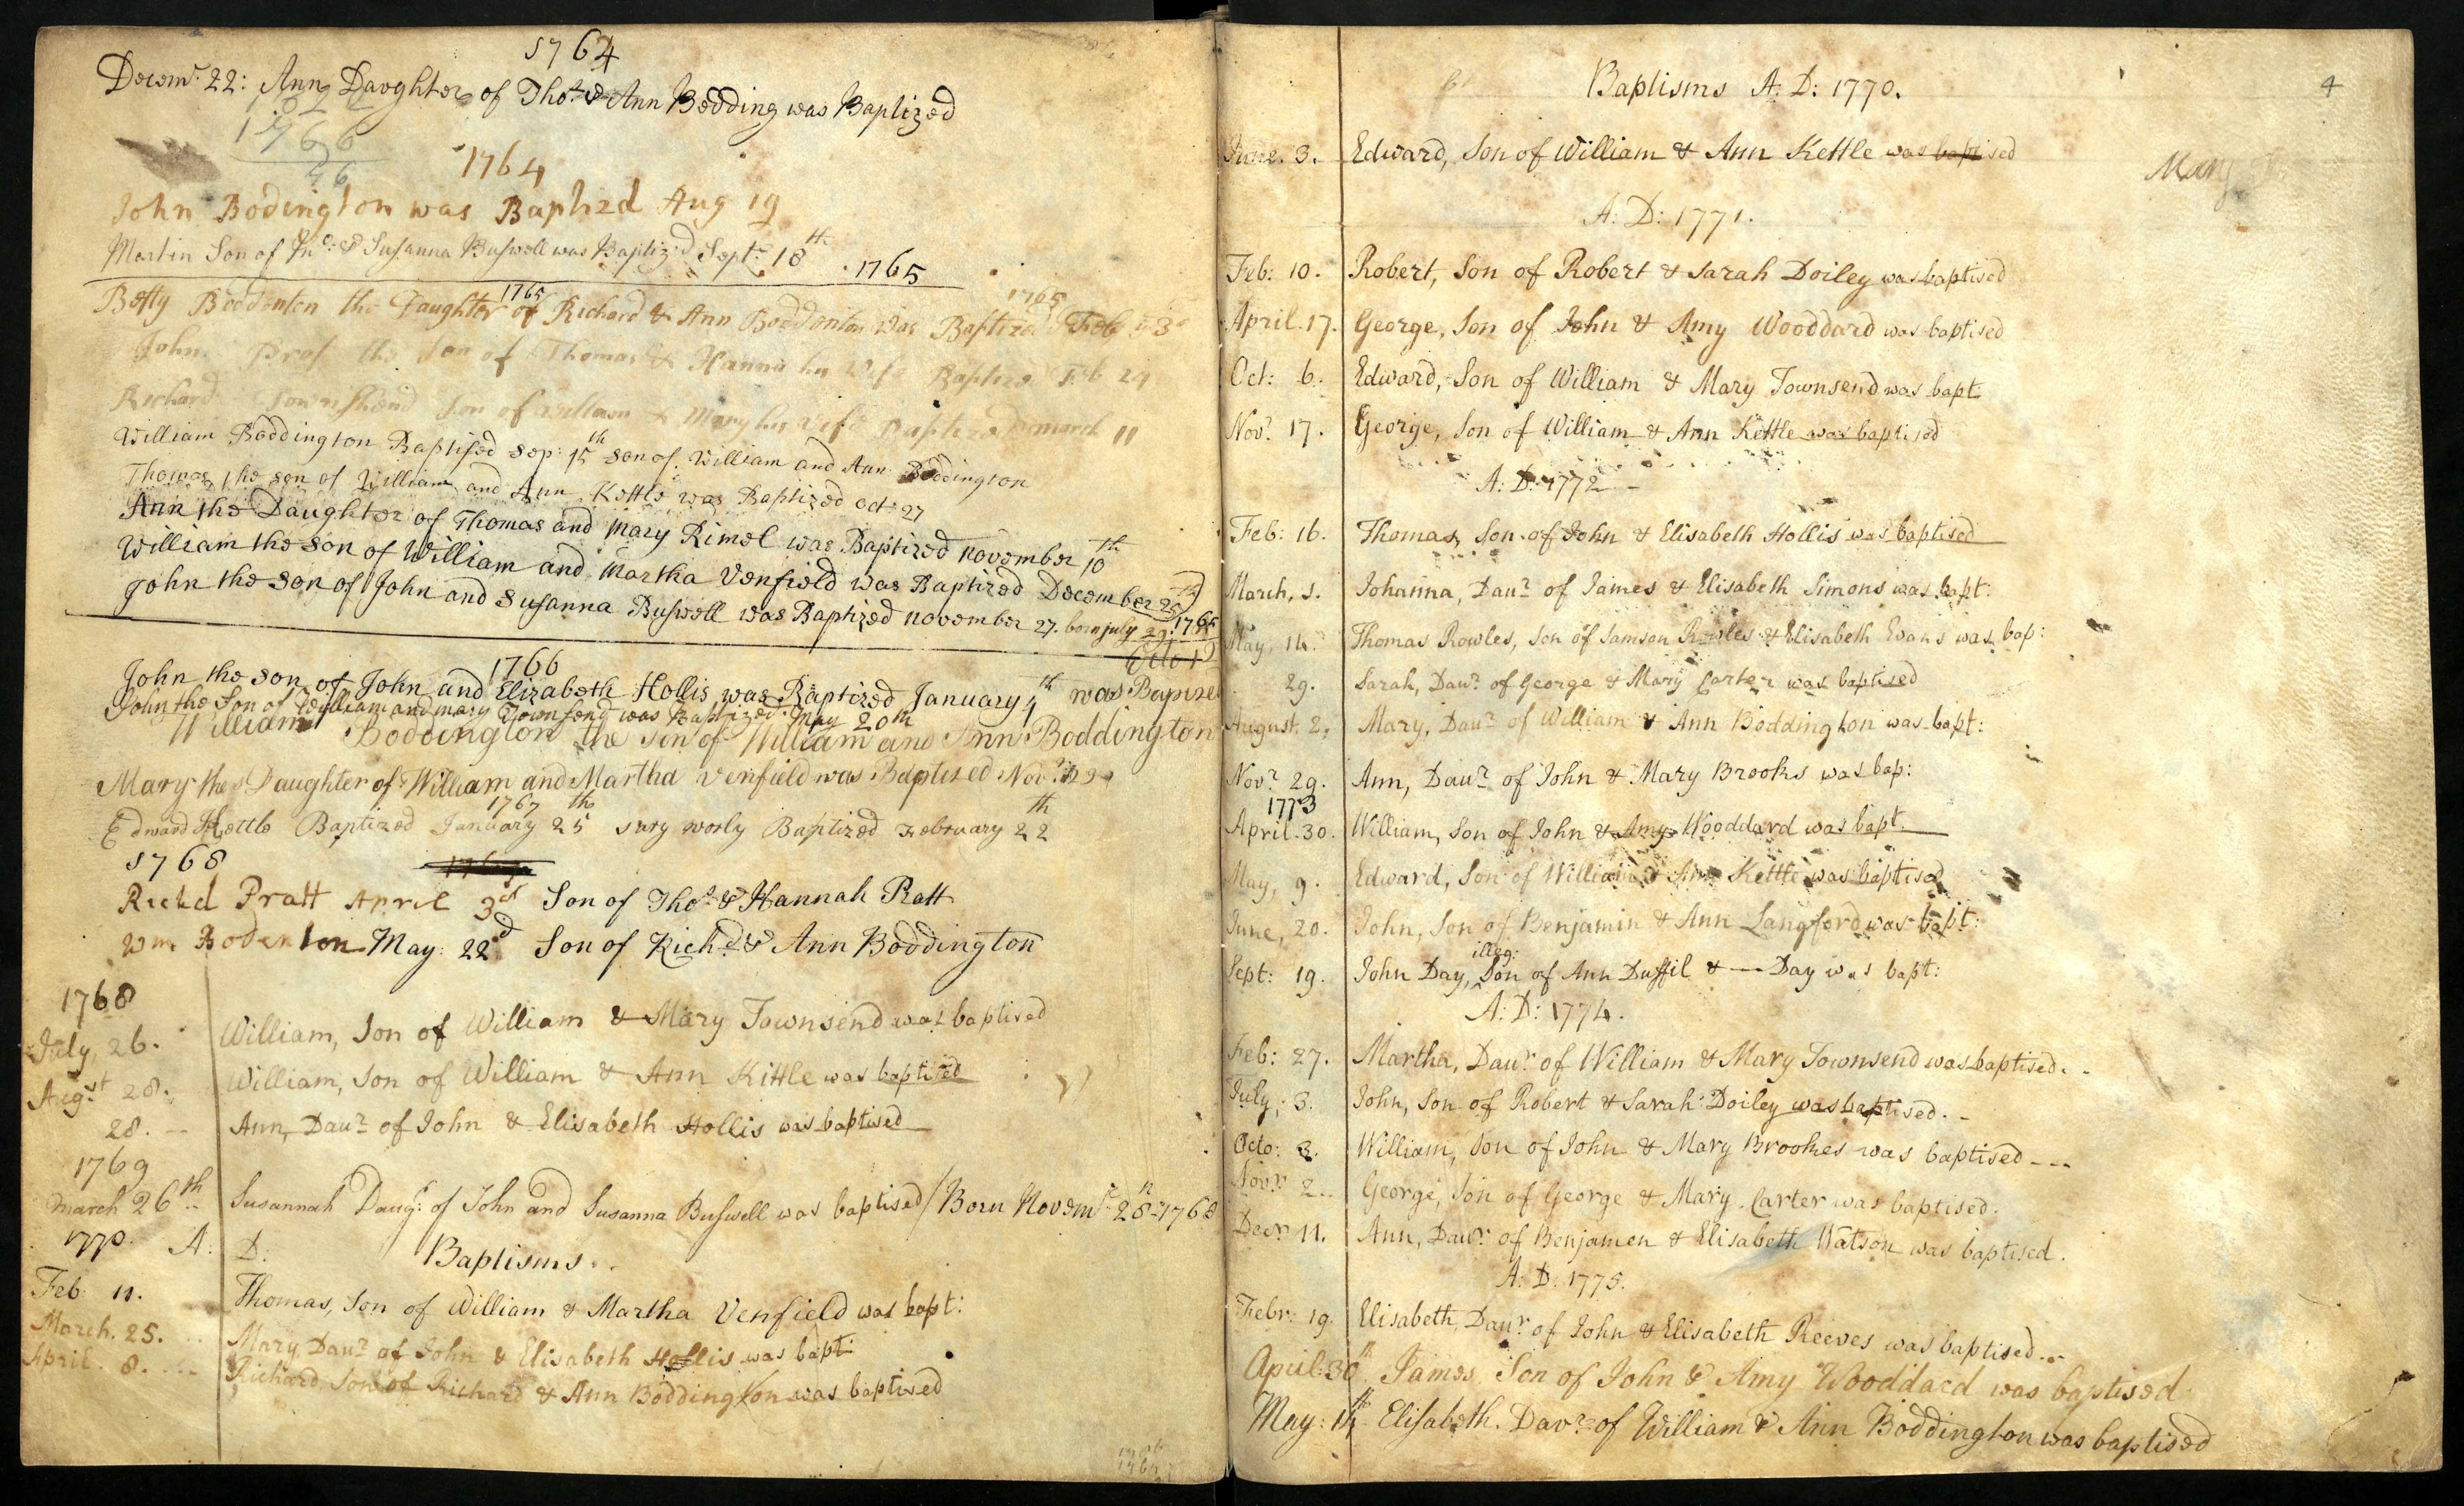 1764
Decemr. 22: Ann Daughter of Thos. & Ann Bedding was Baptized
1766
46
1764
John Bodington was Baptizd Aug 19
Martin Son of Jno: & Susanna Buswell was Baptiz'd Sept: 18th
1765
1765 1765
Betty Boddenton the Daughter of Richard & Ann Boddenton was Baptized Feb 3
John Prat the Son of Thomas & Hanna his Wife Baptized Feb 24
Richard Townshend Son of William & Mary his Wife Baptized march 11
William Boddington Baptised Sep: 15th son of William and Ann Boddington
Thomas the son of William and Ann Kettle was Baptized Oct 27
Ann the Daughter of Thomas and Mary Rimel was Baptized november 10th
William the son of William and Martha Venfield was Baptized December 25th
John the son of John and Susanna Buswell was Baptized november 27. born july 29: 1765
1766
John the son of John and Elizabeth Hollis was Baptized January was Baptized
John the Son of William and mary Townsend was Baptized May 20th
William Boddington the son of William and Ann Boddington
Mary the Daughter of William and Martha Venfield was Baptised Novr.
1767
Edward Kettle Baptized January 25th Baptized February 22th
1768
Richd Pratt April 3d Son of Thos. & Hannah Pratt
Wm Bodenton May: 22d Son of Richd. & Ann Boddington
1768
July, 26. William, Son of William & Mary Townsend was baptised
Augst 28. William, Son of William & Ann Kittle was baptised
28. -- Ann, Daur. of John & Elisabeth Hollis was baptised
1769
March 26th.. Susannah Daugr. of John and Susanna Buswell was baptised / Born Novemr 28th 1768
1770. A: D: Baptisms..
Feb 11. Thomas, Son of William & Martha Venfield was bapt:
March. 25. Mary, Daur. of John & Elisabeth Hollis was bapt:
April. 8. Richard, Son of Richard & Ann Boddington was baptised
Baptisms A: D: 1770.
4
June. 3. Edward, Son of William & Ann Kettle was baptised
Mary
A: D: 1771.
Feb: 10. Robert, Son of Robert & Sarah Doiley was baptised
April. 17. George, Son of John & Amy Wooddard was baptised
Oct: 6. Edward, Son of William & Mary Townsend was bapt
Novr. 17. George, Son of William & Ann Kettle was baptised
A: D: 1772
Feb: 16. Thomas, Son of John & Elisabeth Hollis was baptised
March, 1. Johanna, Daur. of James & Elisabeth Simons was bapt:
May, 14. Thomas Rowles, Son of Samson Rowles & Elisabeth Evans was bap:
29. Sarah, Daur. of George & Mary Carter was baptised
August 2, Mary, Daur. of William & Ann Boddington was bapt:
Novr. 29. Ann, Daur. of John & Mary Brooks was bap:
1773
April. 30. William, Son of John & Amy Wooddard was bapt.
May, 9. Edward, Son of William & Ann Kettle was baptised
June, 20. John, Son of Benjamin & Ann Langford was bapt:
illeg:
Sept: 19. John Day, Son of Ann Duffil & -- Day was bapt:
A: D: 1774.
Feb: 27. Martha, Daur. of William & Mary Townsend was baptised..
July, 3. John, Son of Robert & Sarah Doiley was baptised.-
Octo: 2. William, Son of John & Mary Brookes was baptised---
Novr. 2.. George, Son of George & Mary Carter was baptised.
Decr. 11. Ann, Daur. of Benjamen & Elisabeth Watson was baptised.
A: D: 1775.
Febr: 19. Elisabeth, Daur. of John & Elisabeth Reeves was baptised..
April: 30th. James, Son of John & Amy Wooddard was baptised
May: 14th Elisabeth. Daur. of William & Ann Boddington was baptised